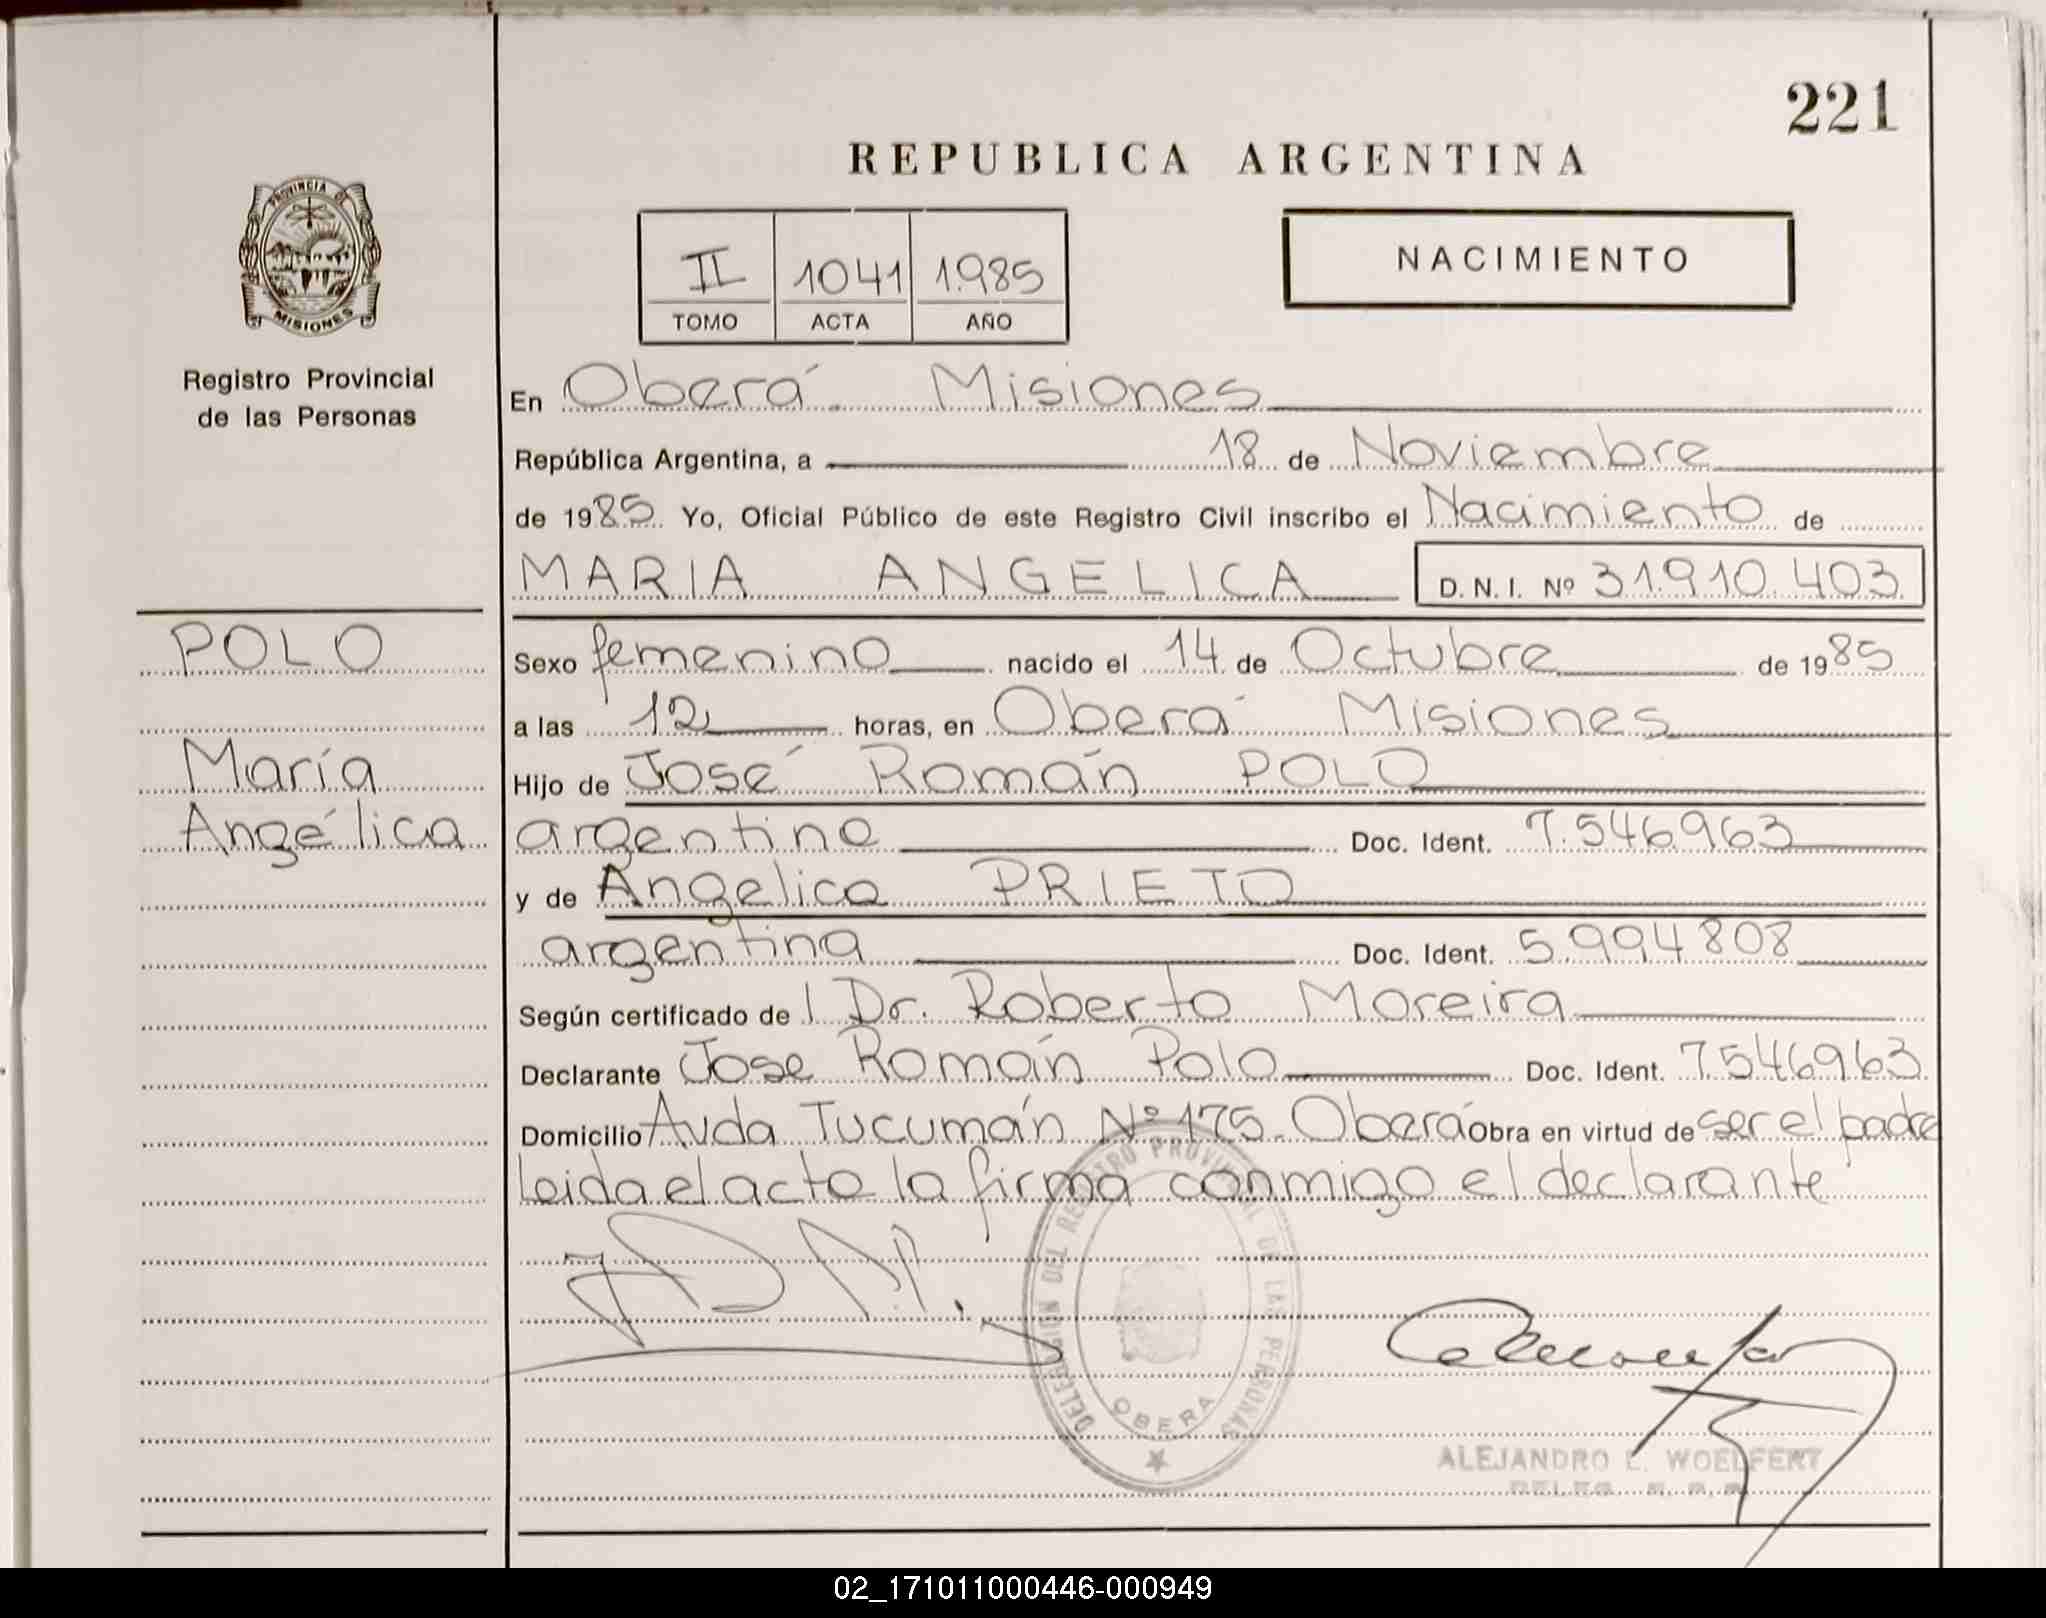 221
REPUBLICA ARGENTINA
PROVINCIA DE
MISIONES
Registro Provincial
de las Personas
II 1041 1.985
TOMO ACTA AÑO
NACIMIENTO
En Oberá Misiones
República Argentina, a 18 de Noviembre
de 1985. Yo, Oficial Público de este Registro Civil inscribo el Nacimiento de
MARIA ANGELICA D. N. I. Nº 31.910.403
POLO
María
Angélica
Sexo femenino nacido el 14 de Octubre de 1985
a las 12 horas, en Oberá Misiones
Hijo de José Román POLO
argentino Doc. Ident. 7.546963
y de Angelica PRIETO
argentina Doc. Ident. 5.994808
Según certificado de l Dr. Roberto Moreira
Declarante Jose Román Polo Doc. Ident. 7.546963
Domicilio Avda Tucumán Nº 175. Oberá Obra en virtud de ser el padre
Leida el acta la firma conmigo el declarante
DELEGACION DEL REGISTRO PROVINCIAL DE LAS PERSONAS
OBERA
ALEJANDRO E. WOELFERT
02_171011000446-000949